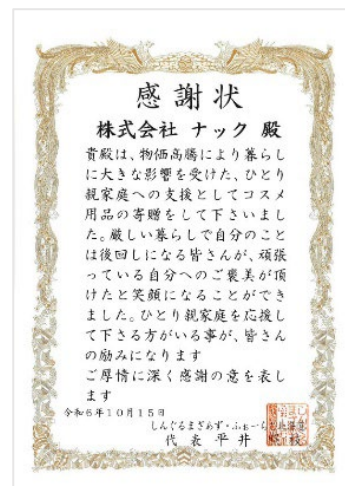 感謝状
株式会社 ナック 殿
貴殿は、物価高騰により暮らし
に大きな影響を受けた、ひとり
親家庭への支援としてコスメ
用品の寄贈をして下さいまし
た。厳しい暮らしで自分のこと
は後回しになる皆さんが、頑張
っている自分へのご褒美が頂
けたと笑顔になることができ
ました。ひとり親家庭を応援し
て下さる方がいる事が、皆さん
の励みになります
ご厚情に深く感謝の意を表し
ます
令和6年10月15日
しんぐるまざあず・ふぉーらむ北海道
代表 平井